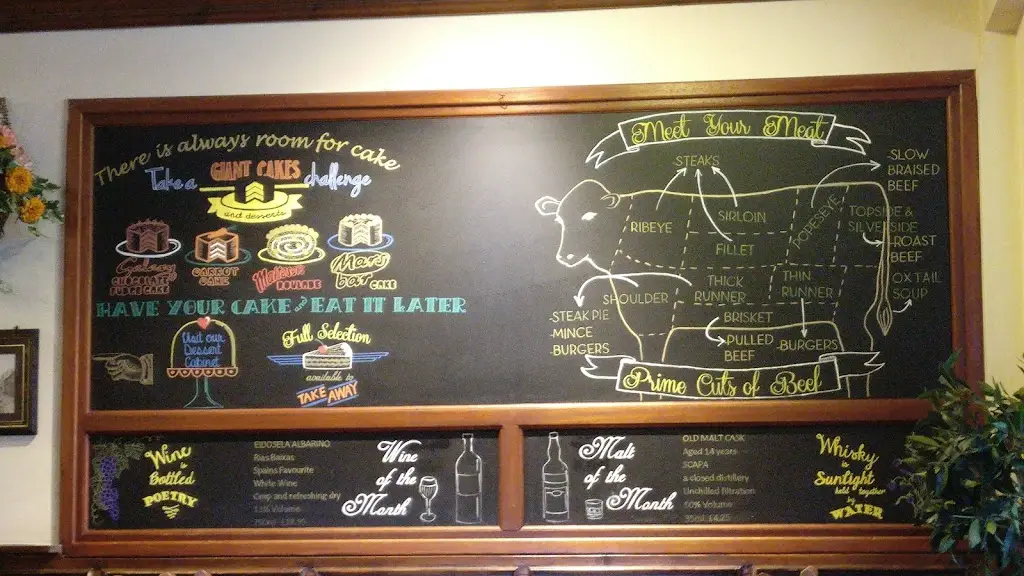 There is always room for cake
Take a GIANT CAKES challenge
and desserts
CHOCOLATE
CARROT
CAKE
Maltezer
ROULADE
Mars
bar CAKE
HAVE YOUR CAKE and EAT IT LATER
Visit our
Dessert
Cabinet
Full Selection
available to
TAKE AWAY
Meet Your Meat
STEAKS
-SLOW
BRAISED
BEEF
RIBEYE
SIRLOIN
FILLET
POPESEYE
TOPSIDE &
SILVERSIDE
-ROAST
BEEF
OXTAIL
SOUP
SHOULDER
THICK
RUNNER
THIN
RUNNER
-STEAK PIE
-MINCE
-BURGERS
BRISKET
-PULLED
BEEF
-BURGERS
Prime Cuts of Beef
Wine
is
Bottled
POETRY
EIDOSELA ALBARINO
Rias Baixas
Spains Favourite
White Wine
Crisp and refreshing dry
Volume
Wine
of the
Month
Malt
of the
Month
OLD MALT CASK
Aged 14 years
SCAPA
a closed distillery
Unchilled filtration
50% Volume
35ml £4.25
Whisky
is
Sunlight
held together
by
WATER